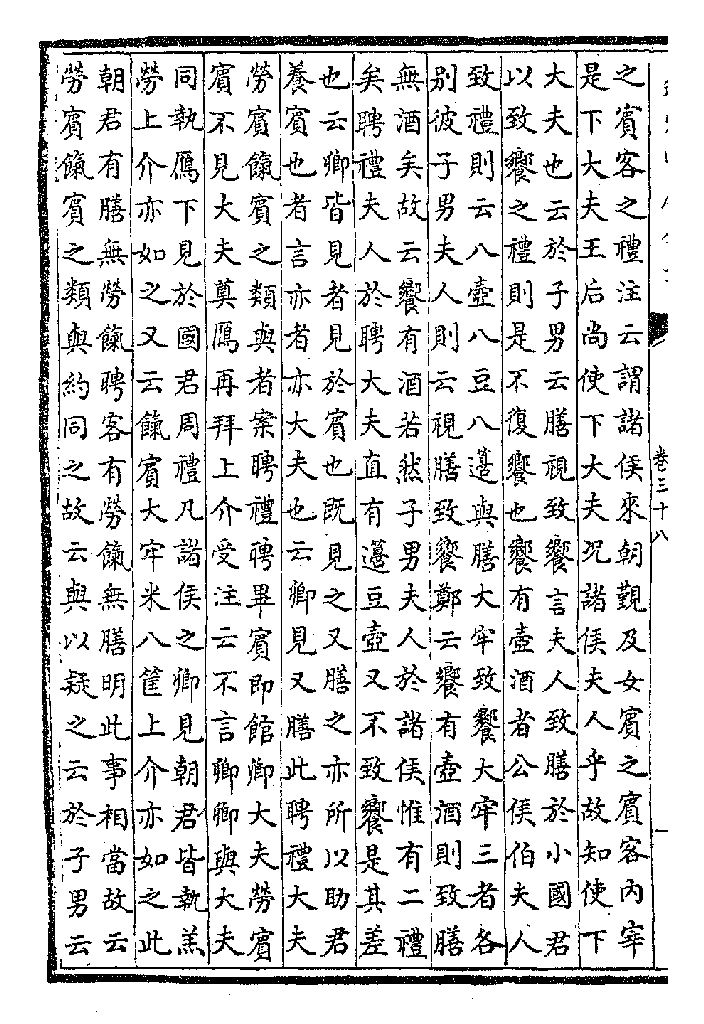 之賓客之禮注云謂諸侯來朝覲及女賓之賓客內宰
是下大夫王后尚使下大夫况諸侯夫人乎故知使下
大夫也云於子男云膳視致饗言夫人致膳於小國君
以致饗之禮則是不復饗也饗有壺酒者公侯伯夫人
致禮則云八壺八豆八籩與膳大牢致饗大牢三者各
别彼子男夫人則云視膳致饗鄭云饗有壺酒則致膳
無酒矣故云饗有酒若然子男夫人於諸侯惟有二禮
矣聘禮夫人於聘大夫直有籩豆壺又不致饗是其差
也云卿皆見者見於賓也既見之又膳之亦所以助君
養賓也者言亦者亦大夫也云卿見又膳此聘禮大夫
勞賓餼賓之類與者案聘禮聘畢賓即館卿大夫勞賓
賓不見大夫奠鴈再拜上介受注云不言卿卿與大夫
同執鴈下見於國君周禮凡諸侯之卿見朝君皆執羔
勞上介亦如之又云餼賓大牢米八筐上介亦如之此
朝君有膳無勞餼聘客有勞餼無膳明此事相當故云
勞賓餼賓之類與約同之故云與以疑之云於子男云
卷三十八
一